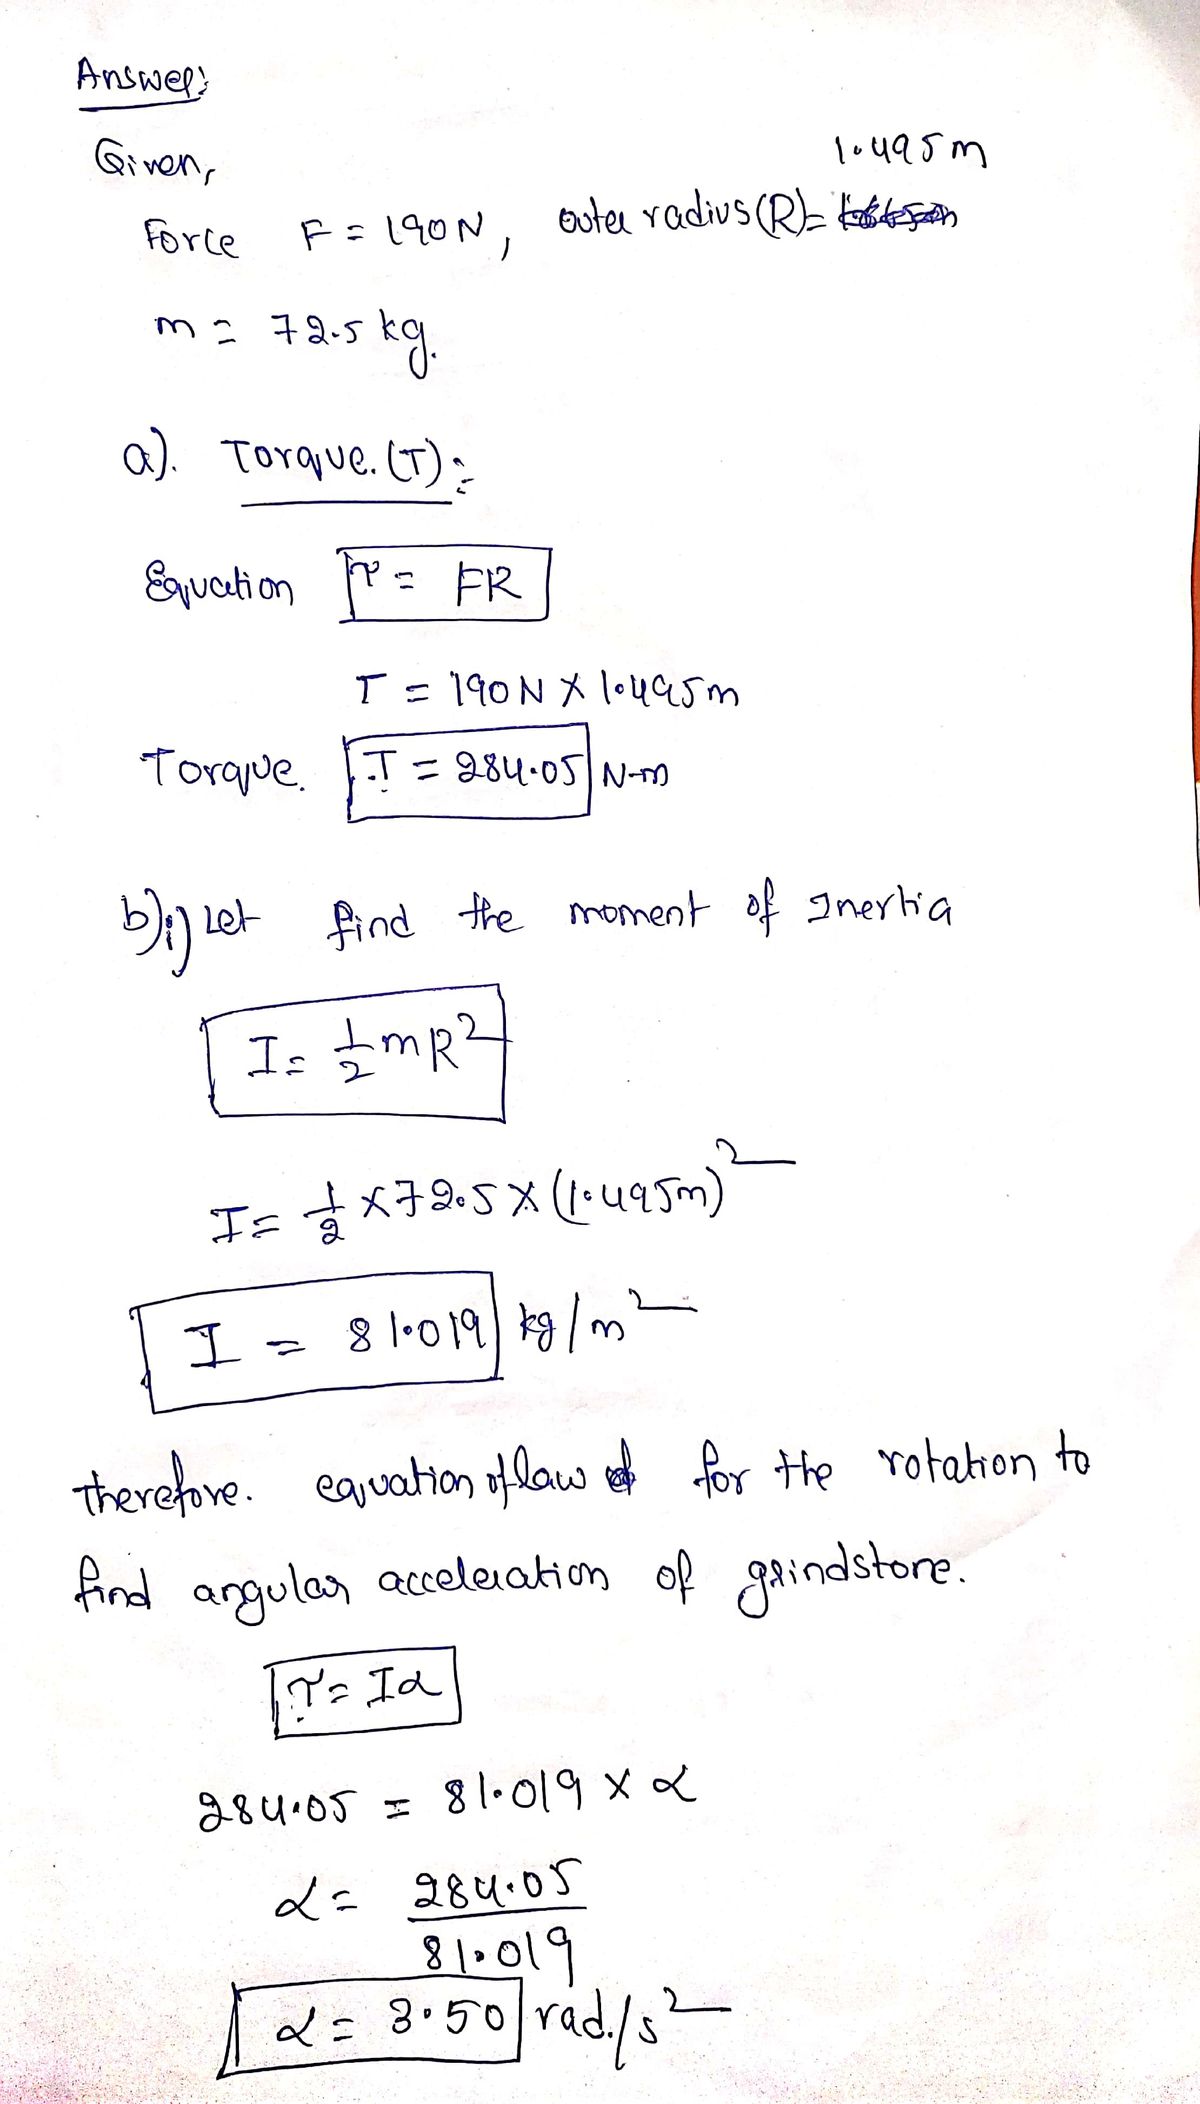 Answer:
Given,
1.495m
Force F = 190N, outer radius(R)=
m = 72.5 kg.
a). Torque.(T):-
Equation τ = FR
T = 190N × 1.495m
Torque. T = 284.05 N-m
b)i) Let find the moment of Inertia
I = 1/2 mR²
I = 1/2 × 72.5 × (1.495m)²
I = 81.019 kg/m²
therefore. equation of law for the rotation to
find angular acceleration of grindstone.
τ = Iα
284.05 = 81.019 × α
α = 284.05
81.019
α = 3.50 rad./s²